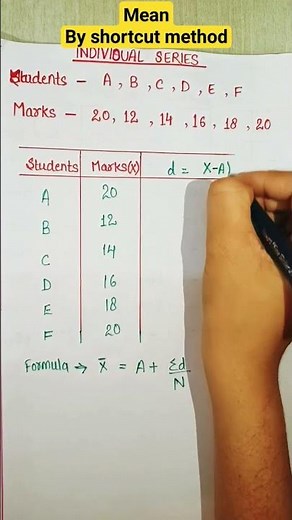 Mean
By shortcut method
INDIVIDUAL SERIES
Students - A, B, C, D, E, F
Marks - 20, 12, 14, 16, 18, 20
Students Marks(x) d = X-A)
A 20
B 12
C 14
D 16
E 18
F 20
Formula → X̄ = A + Σd/N